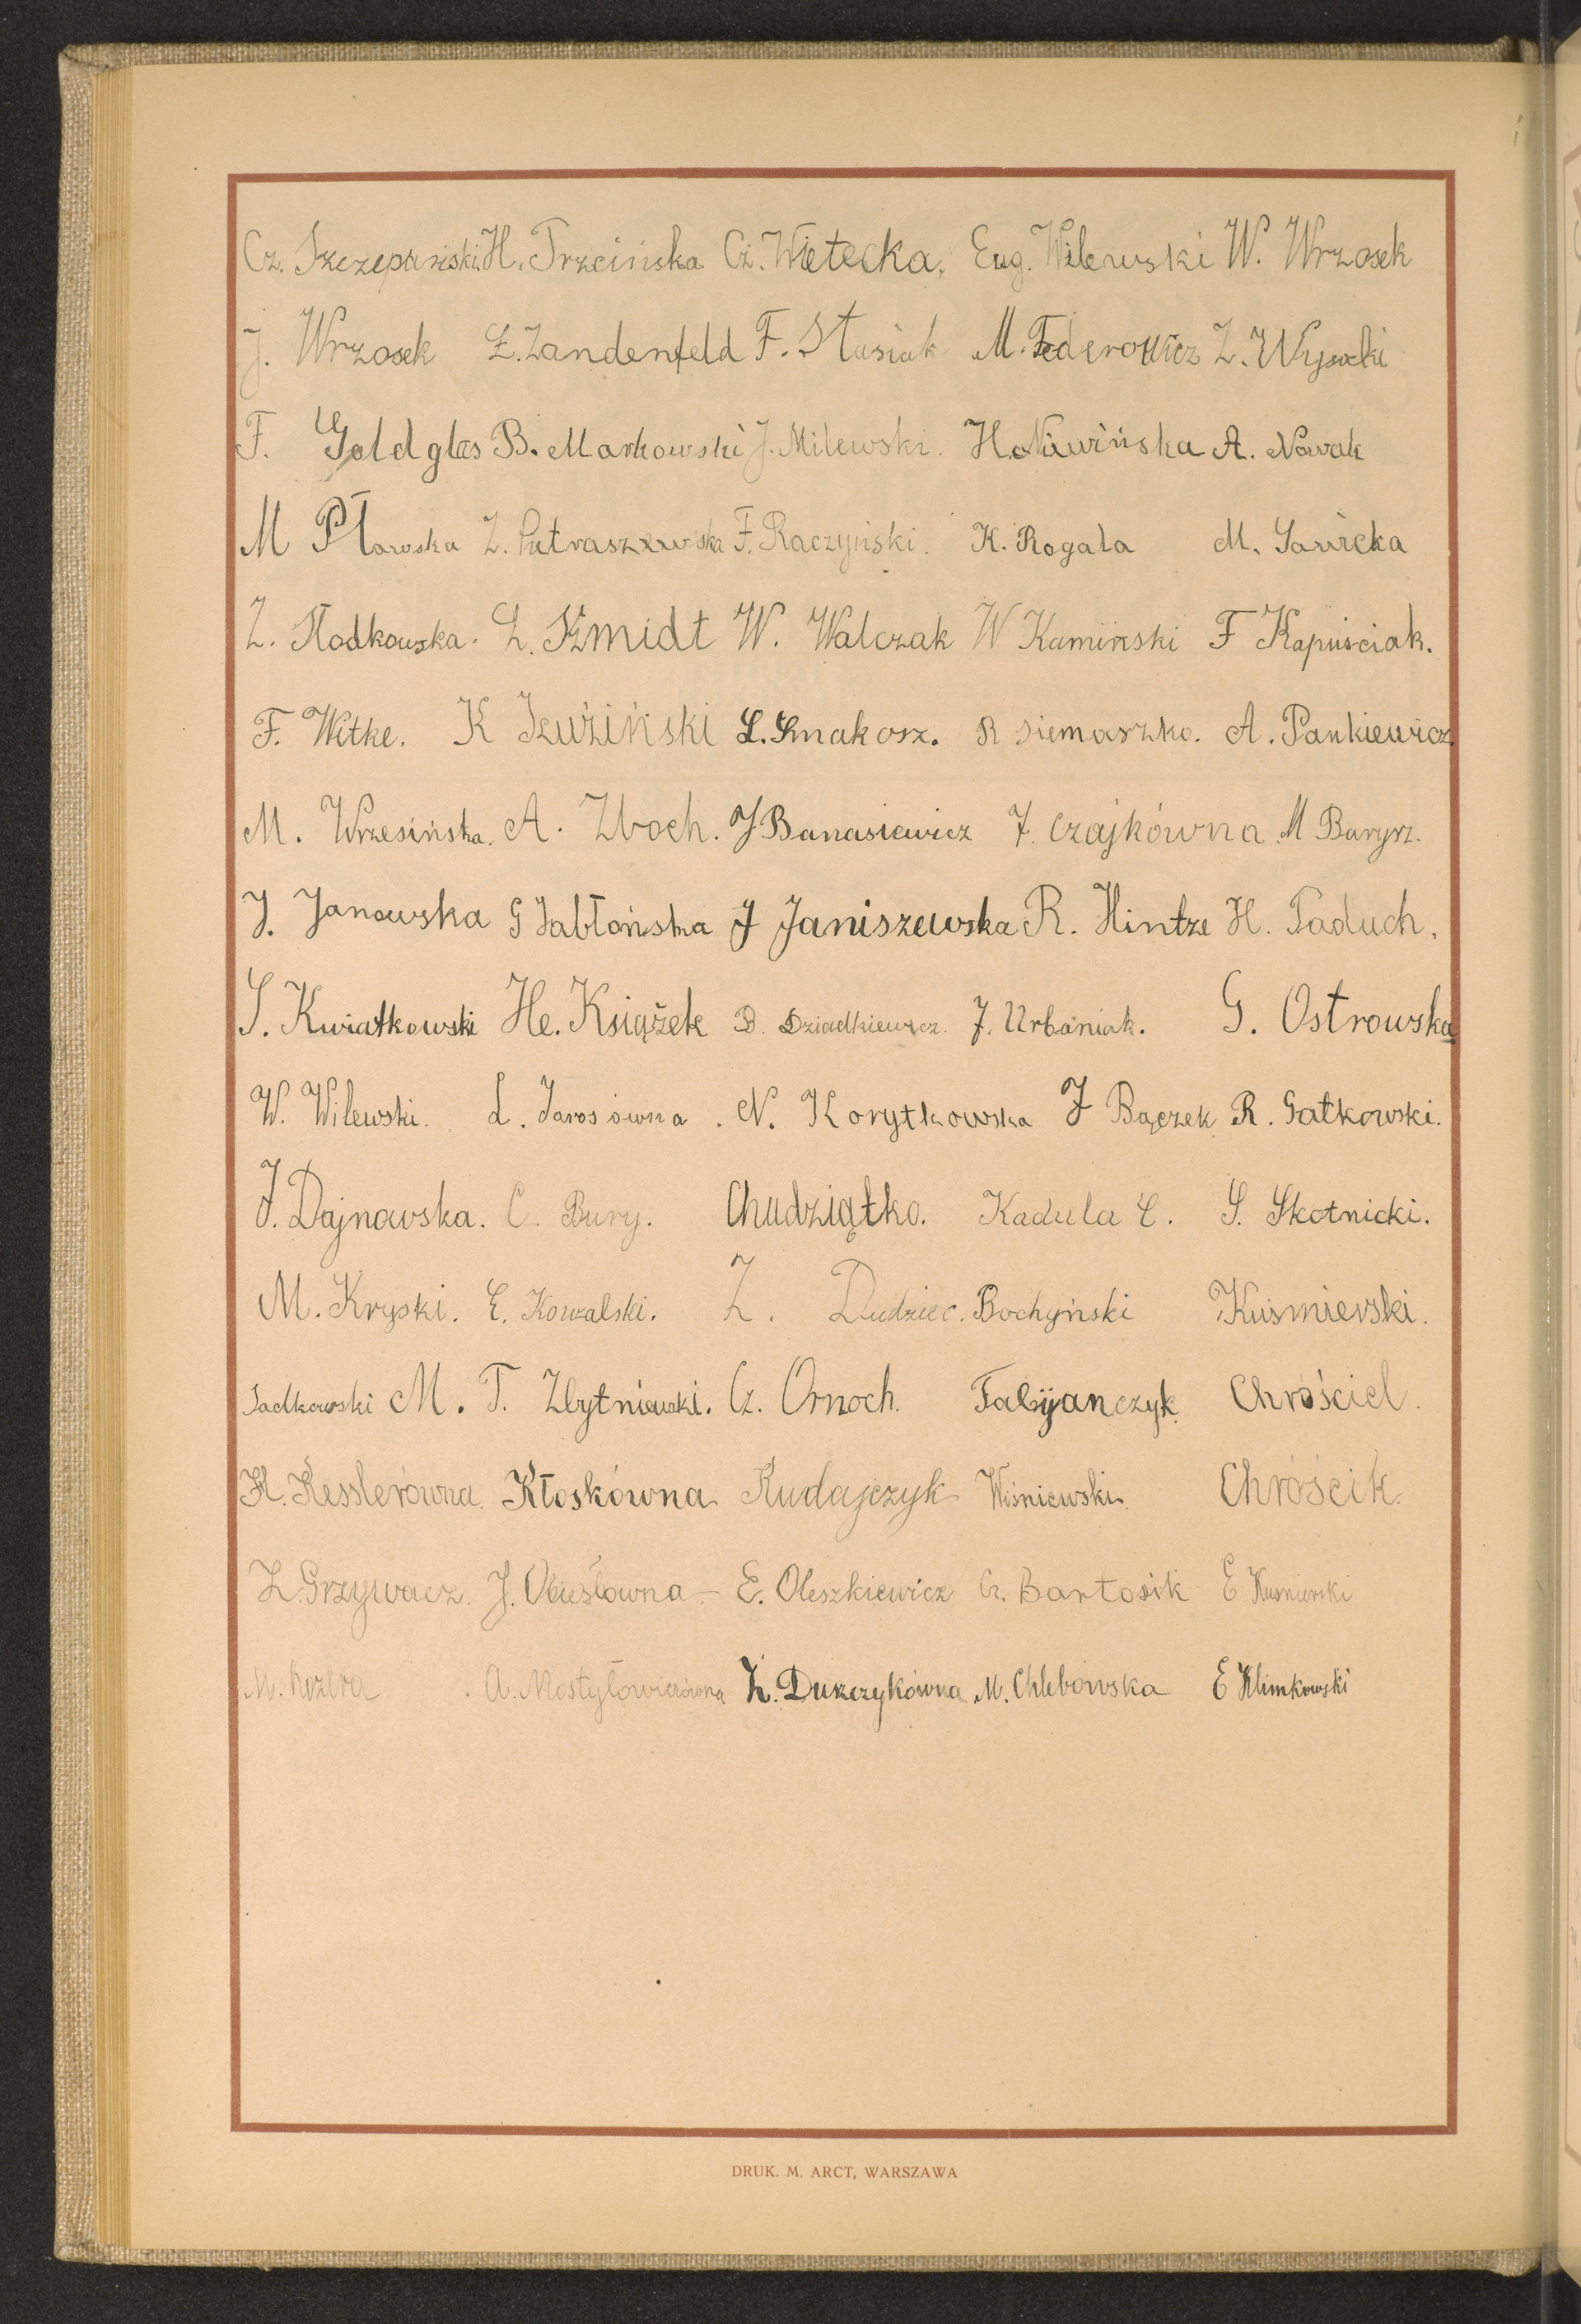 Cz. Szczepański H. Trzcińska Cz. Wietecka. Eug. Wilewski W. Wrzosek
J. Wrzosek Z. Zandenfeld F. Stasiak M. Federowicz Z. Wysocki
F. Goldglas B. Markowski J. Milewski. H. Nawińska A. Nowak
M Pławska Z. Petraszewska F. Raczyński. K. Rogala M. Sawicka
Z. Słodkowska. L. Szmidt W. Walczak W Kamiński F Kapuściak.
F. Witke. K Izuźiński L. Smakosz. R Siemaszko. A. Pankiewicz
M. Wrzesińska. A. Zboch. J Banasiewicz J. Czajkówna. M Barysz.
J. Janowska G Jabłońska J Janiszewska R. Hintze H. Paduch.
S. Kwiatkowski He. Książek B. Dziadkiewicz. J. Urbaniak. G. Ostrowska
W. Wilewski. L. Jarosówna. N. Korytkowska J Bączek R. Gatkowski.
J. Dajnowska. C. Bury. Chudziątko. Kadula C. S. Skotnicki.
M. Kryski. E. Kowalski. Z. Dudziec. Bochyński Kuśmierski.
Sadkowski M. T. Zbytniewski. Cz. Ornoch. Fabijanczyk. Chróściel.
H. Kesslerówna. Kłoskówna Rudajczyk Wiśniewski. Chróścik.
Z. Grzywacz. J. E. Oleszkiewicz Cz. Bartosik E Kuśmierski
M. Kozera. A. Mostyłowiczówna Z. Duszczykówna M. Chlebowska E Klimkowski
DRUK. M. ARCT, WARSZAWA